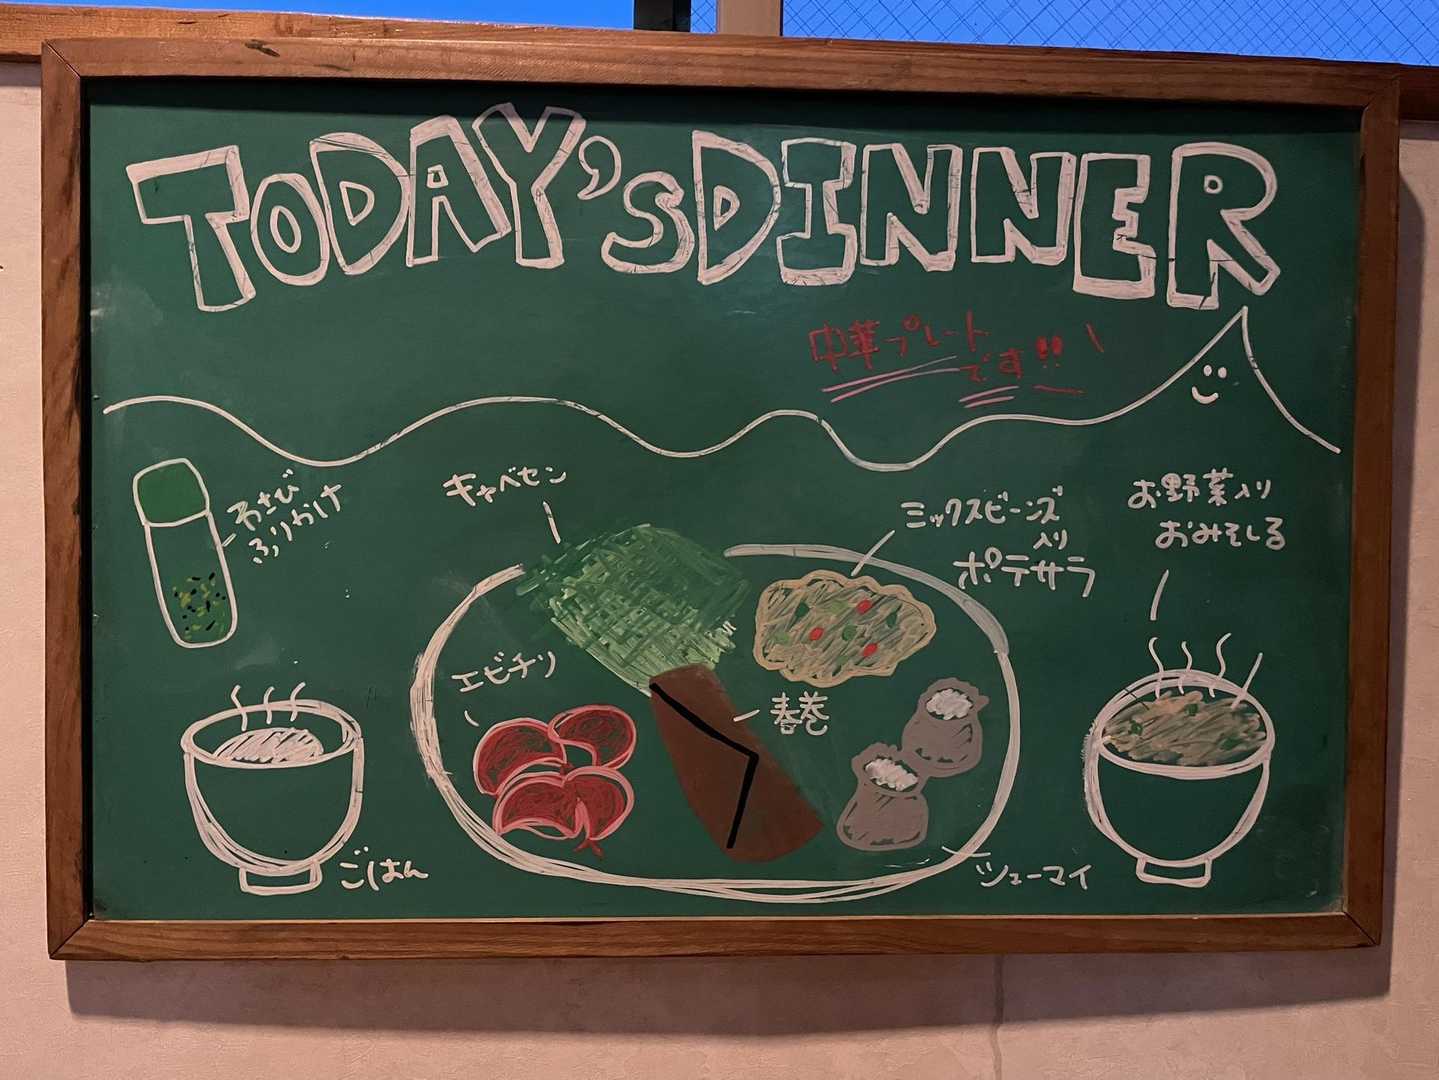 TODAY'S DINNER
中華プレート
です!!
わさび
ふりかけ
キャベセン
ミックスビーンズ
入り
ポテサラ
お野菜入り
おみそしる
エビチリ
春巻
ごはん
シューマイ